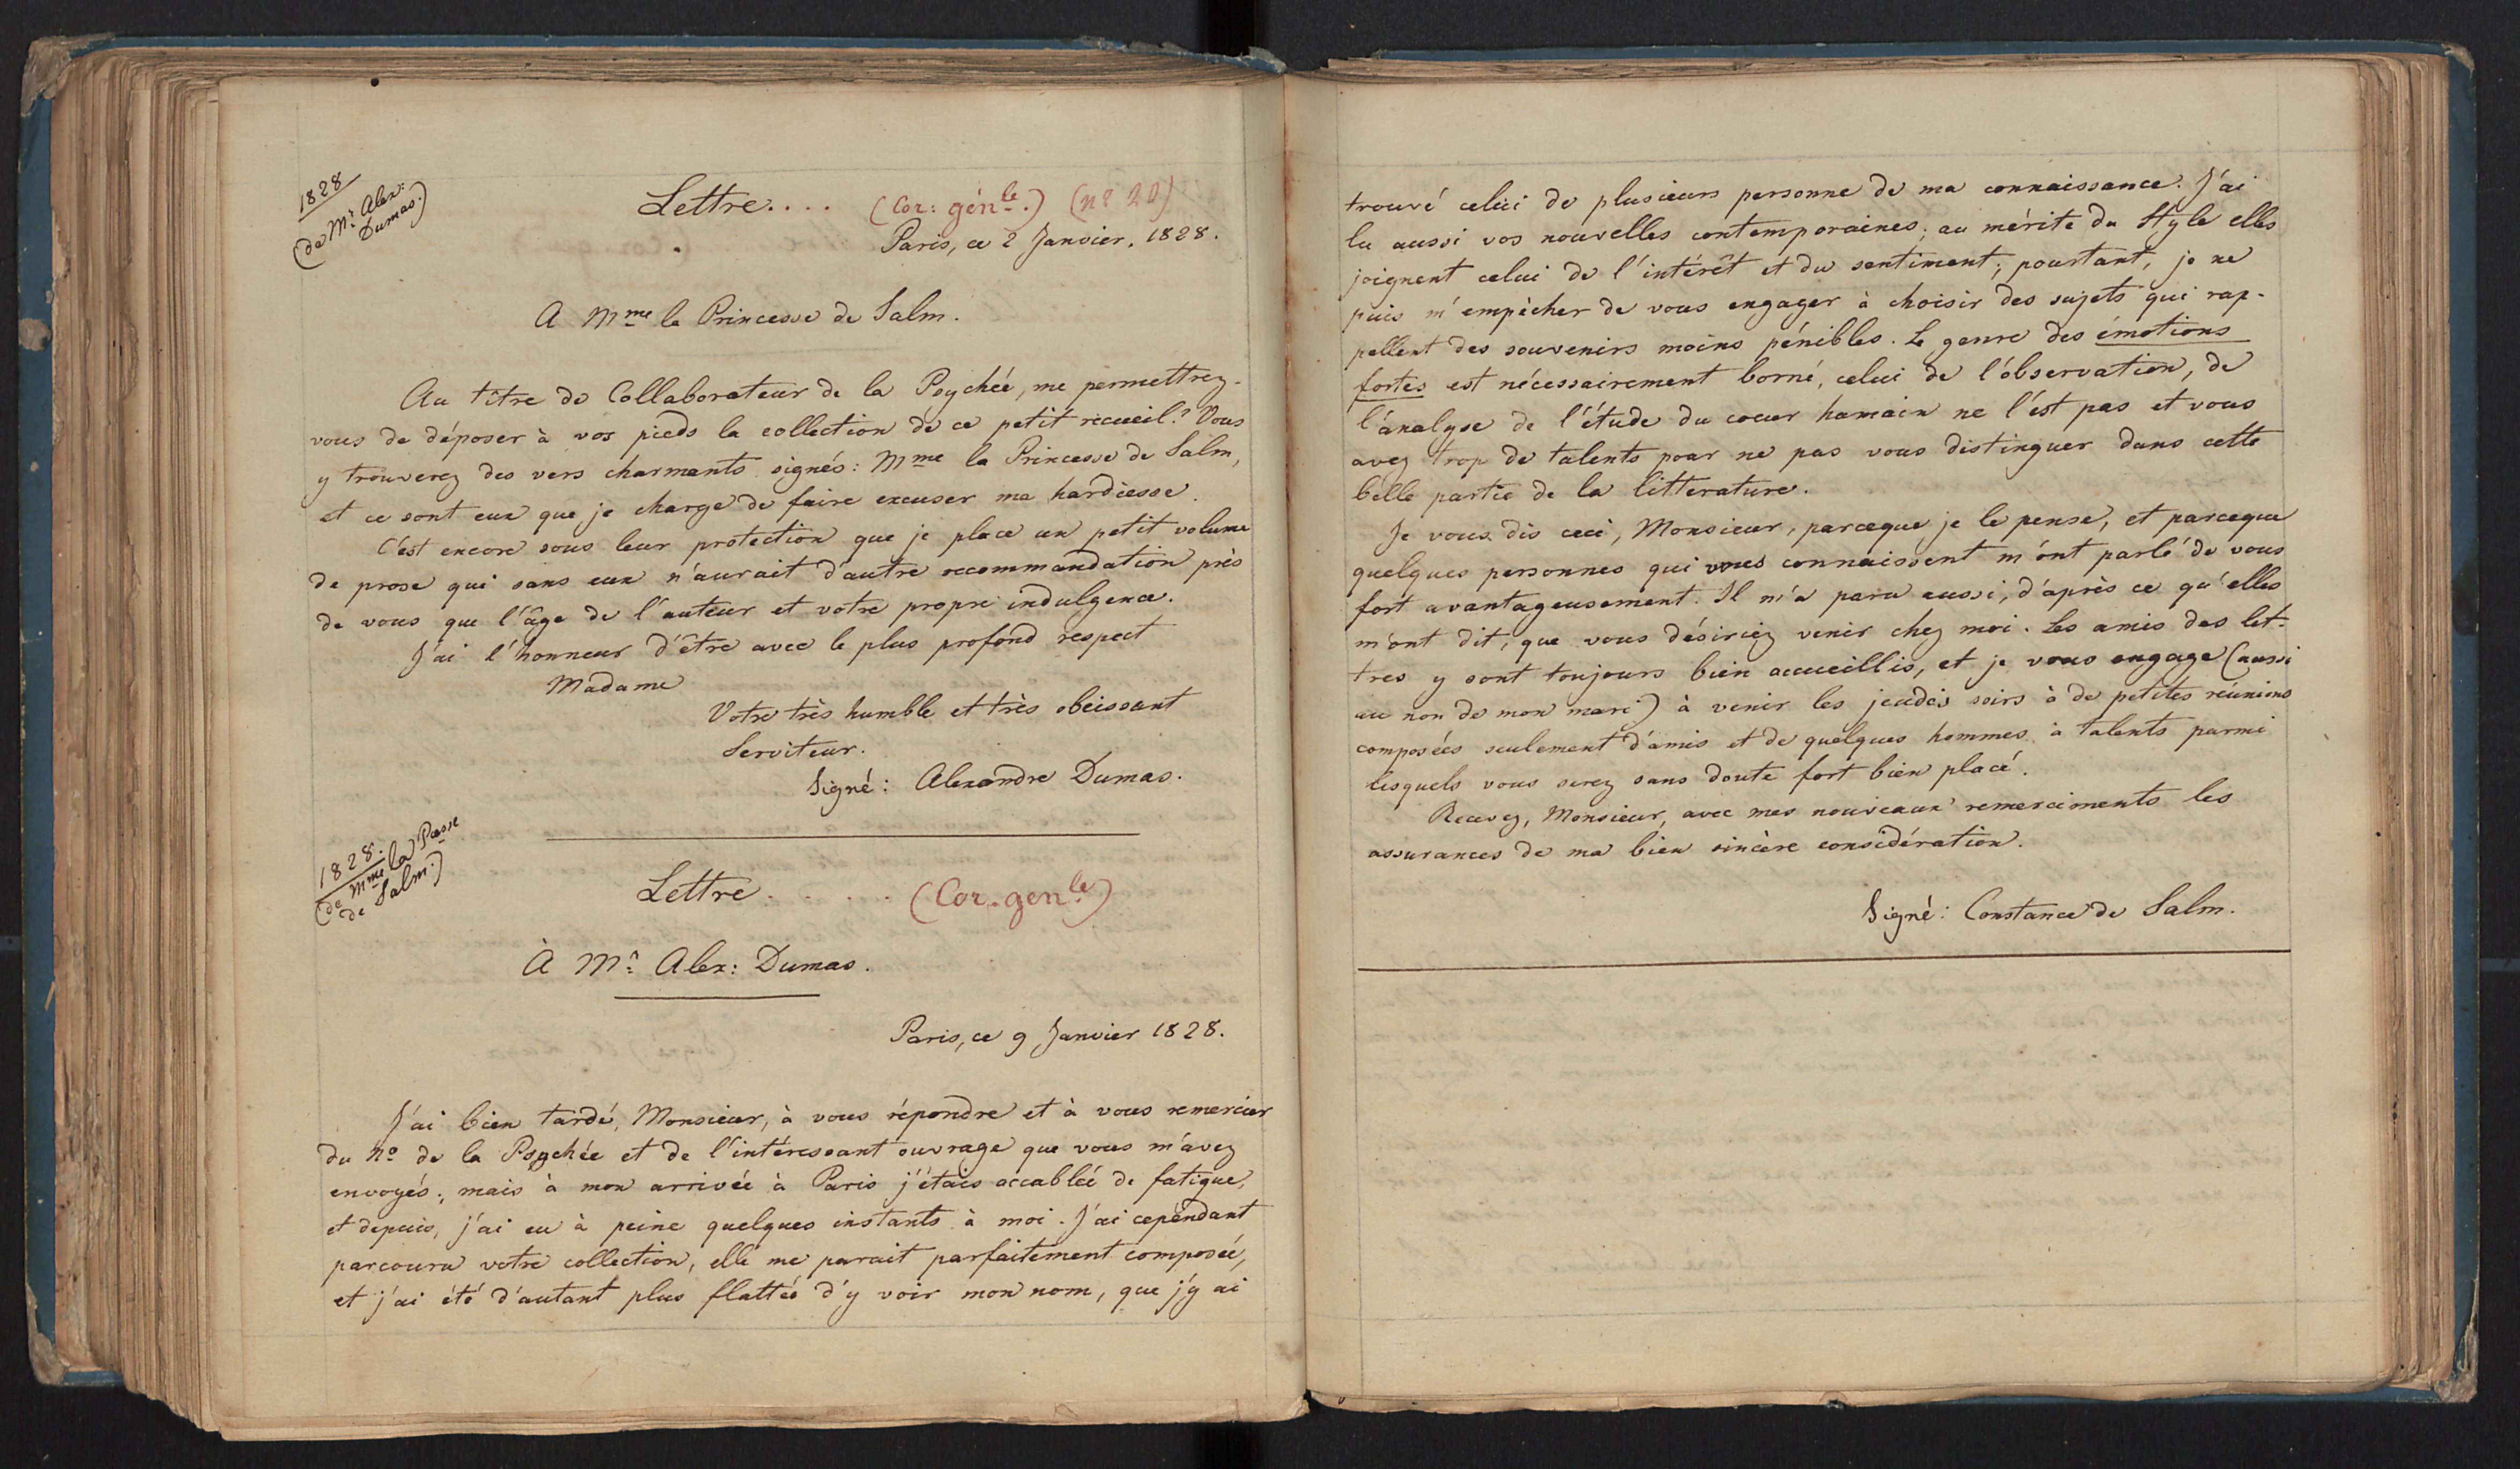 1828
(de Mr. Alex:
Dumas.)
Lettre.... (Cor: génle.) (no 20)
Paris, ce 2 Janvier, 1828.
A Mme la Princesse de Salm.
Au titre de Collaborateur de la Psychée, me permettrez-
vous de déposer à vos pieds la collection de ce petit recueil? Vous
y trouverez des vers charmants signés: Mme la Princesse de Salm,
et ce sont eux que je charge de faire excuser ma hardiesse.
C'est encore sous leur protection que je place un petit volume
de prose qui sans eux n'aurait d'autre recommandation près
de vous que l'âge de l'auteur et votre propre indulgence.
J'ai l'honneur d'être avec le plus profond respect
Madame
Votre très humble et très obéissant
Serviteur.
Signé: Alexandre Dumas.
1828.
(de Mme la Pcesse
de Salm.)
Lettre..... (Cor. genle)
À Mr. Alex: Dumas.
Paris, ce 9 Janvier 1828.
J'ai bien tardé, Monsieur, à vous répondre et à vous remercier
du No de la Psychée et de l'intéressant ouvrage que vous m'avez
envoyés; mais à mon arrivée à Paris j'étais accablée de fatigue,
et depuis, j'ai eu à peine quelques instants à moi. J'ai cependant
parcouru votre collection, elle me parait parfaitement composée,
et j'ai été d'autant plus flattée d'y voir mon nom, que j'y ai
trouvé celui de plusieurs personne de ma connaissance. J'ai
lu aussi vos nouvelles contemporaines; au mérite du style elles
joignent celui de l'intérêt et du sentiment; pourtant, je ne
puis m'empêcher de vous engager à choisir des sujets qui rap-
pellent des souvenirs moins pénibles. Le genre des émotions
fortes est nécessairement borné, celui de l'observation, de
l'analyse de l'étude du coeur humain ne l'est pas et vous
avez trop de talents pour ne pas vous distinguer dans cette
belle partie de la littérature.
Je vous dis ceci, Monsieur, parceque je le pense, et parceque
quelques personnes qui vous connaissent m'ont parlé de vous
fort avantageusement. Il m'a paru aussi, d'après ce qu'elles
m'ont dit, que vous désiriez venir chez moi. Les amis des let-
tres y sont toujours bien accueillis, et je vous engage (aussi
au nom de mon mari) à venir les jeudis soirs à de petites réunions
composées seulement d'amis et de quelques hommes à talents parmi
lesquels vous serez sans doute fort bien placé.
Recevez, Monsieur, avec mes nouveaux remerciments les
assurances de ma bien sincère considération.
Signé: Constance de Salm.